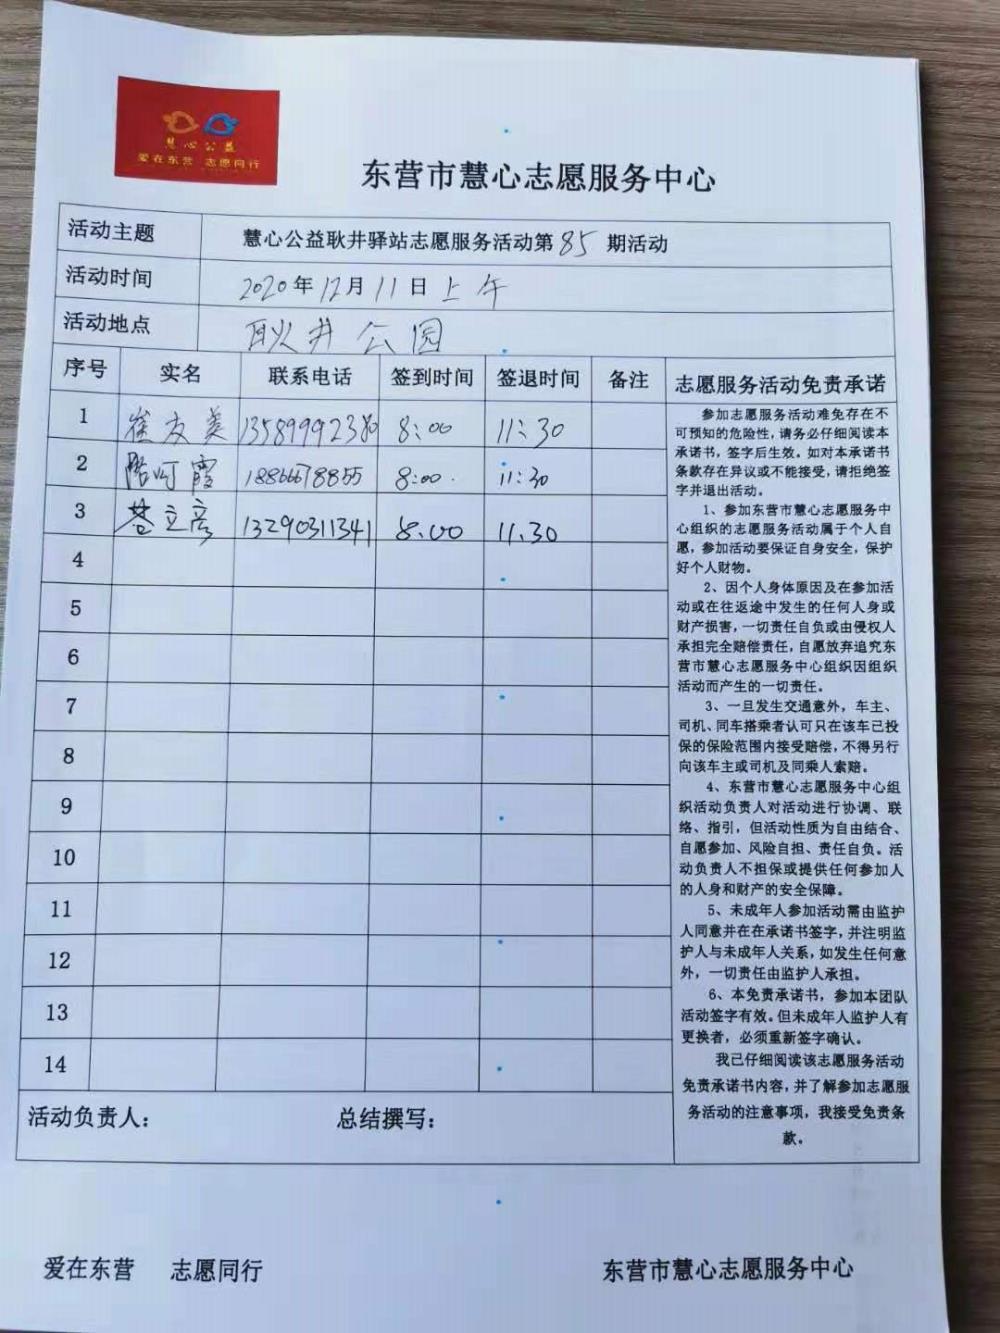 慧心公益
爱在东营 志愿同行
东营市慧心志愿服务中心
活动主题 慧心公益耿井驿站志愿服务活动第85期活动
活动时间 2020年12月11日上午
活动地点 耿井公园
序号 实名 联系电话 签到时间 签退时间 备注
1 崔友美 13589992380 8:00 11:30
2 18866678855 8:00. 11:30
3 13290311341 8:00 11.30
4
5
6
7
8
9
10
11
12
13
14
活动负责人: 总结撰写:
志愿服务活动免责承诺
参加志愿服务活动难免存在不
可预知的危险性,请务必仔细阅读本
承诺书,签字后生效。如对本承诺书
条款存在异议或不能接受,请拒绝签
字并退出活动。
1、参加东营市慧心志愿服务中
心组织的志愿服务活动属于个人自
愿,参加活动要保证自身安全,保护
好个人财物。
2、因个人身体原因及在参加活
动或在往返途中发生的任何人身或
财产损害,一切责任自负或由侵权人
承担完全赔偿责任,自愿放弃追究东
营市慧心志愿服务中心组织因组织
活动而产生的一切责任。
3、一旦发生交通意外,车主、
司机、同车搭乘者认可只在该车已投
保的保险范围内接受赔偿,不得另行
向该车主或司机及同乘人索赔。
4、东营市慧心志愿服务中心组
织活动负责人对活动进行协调、联
络、指引,但活动性质为自由结合、
自愿参加、风险自担、责任自负。活
动负责人不担保或提供任何参加人
的人身和财产的安全保障。
5、未成年人参加活动需由监护
人同意并在在承诺书签字,并注明监
护人与未成年人关系,如发生任何意
外,一切责任由监护人承担。
6、本免责承诺书,参加本团队
活动签字有效。但未成年人监护人有
更换者,必须重新签字确认。
我已仔细阅读该志愿服务活动
免责承诺书内容,并了解参加志愿服
务活动的注意事项,我接受免责条
款。
爱在东营 志愿同行 东营市慧心志愿服务中心